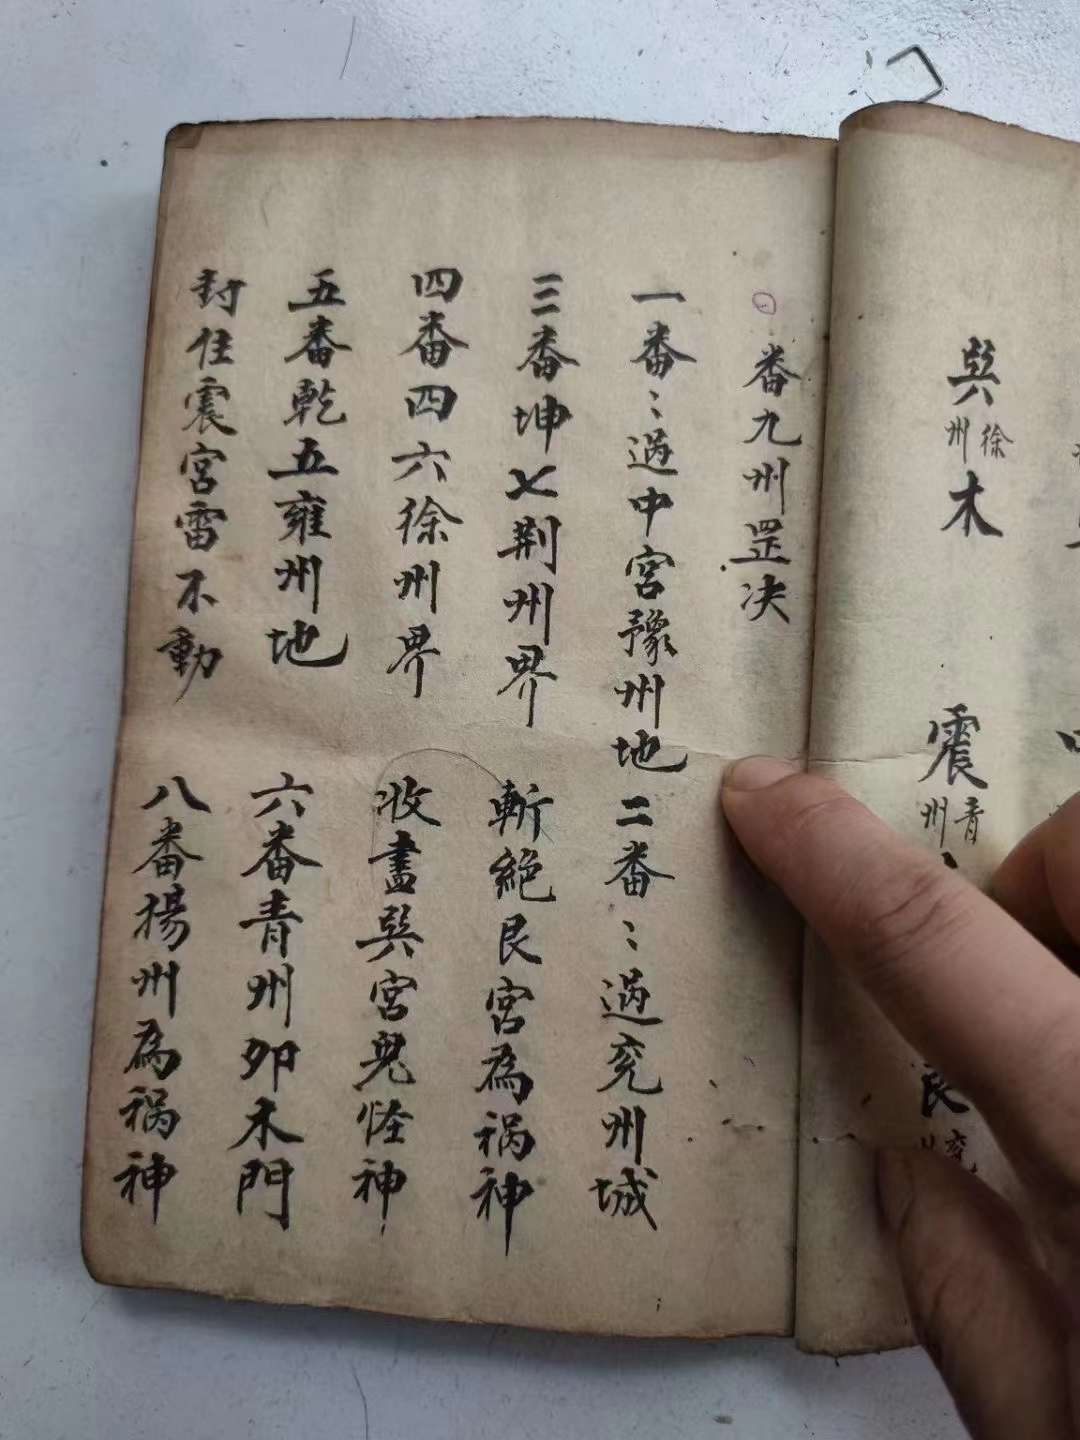 巽 徐州 木 震 青州
番九州罡决
一番〻過中宮豫州地 二番〻過兖州城
三番坤七荆州界 斬絶艮宮為祸神
四番四六徐州界 收盡巽宮鬼怪神
五番乾五雍州地 六番青州卯木門
封住震宮雷不動 八番揚州為祸神